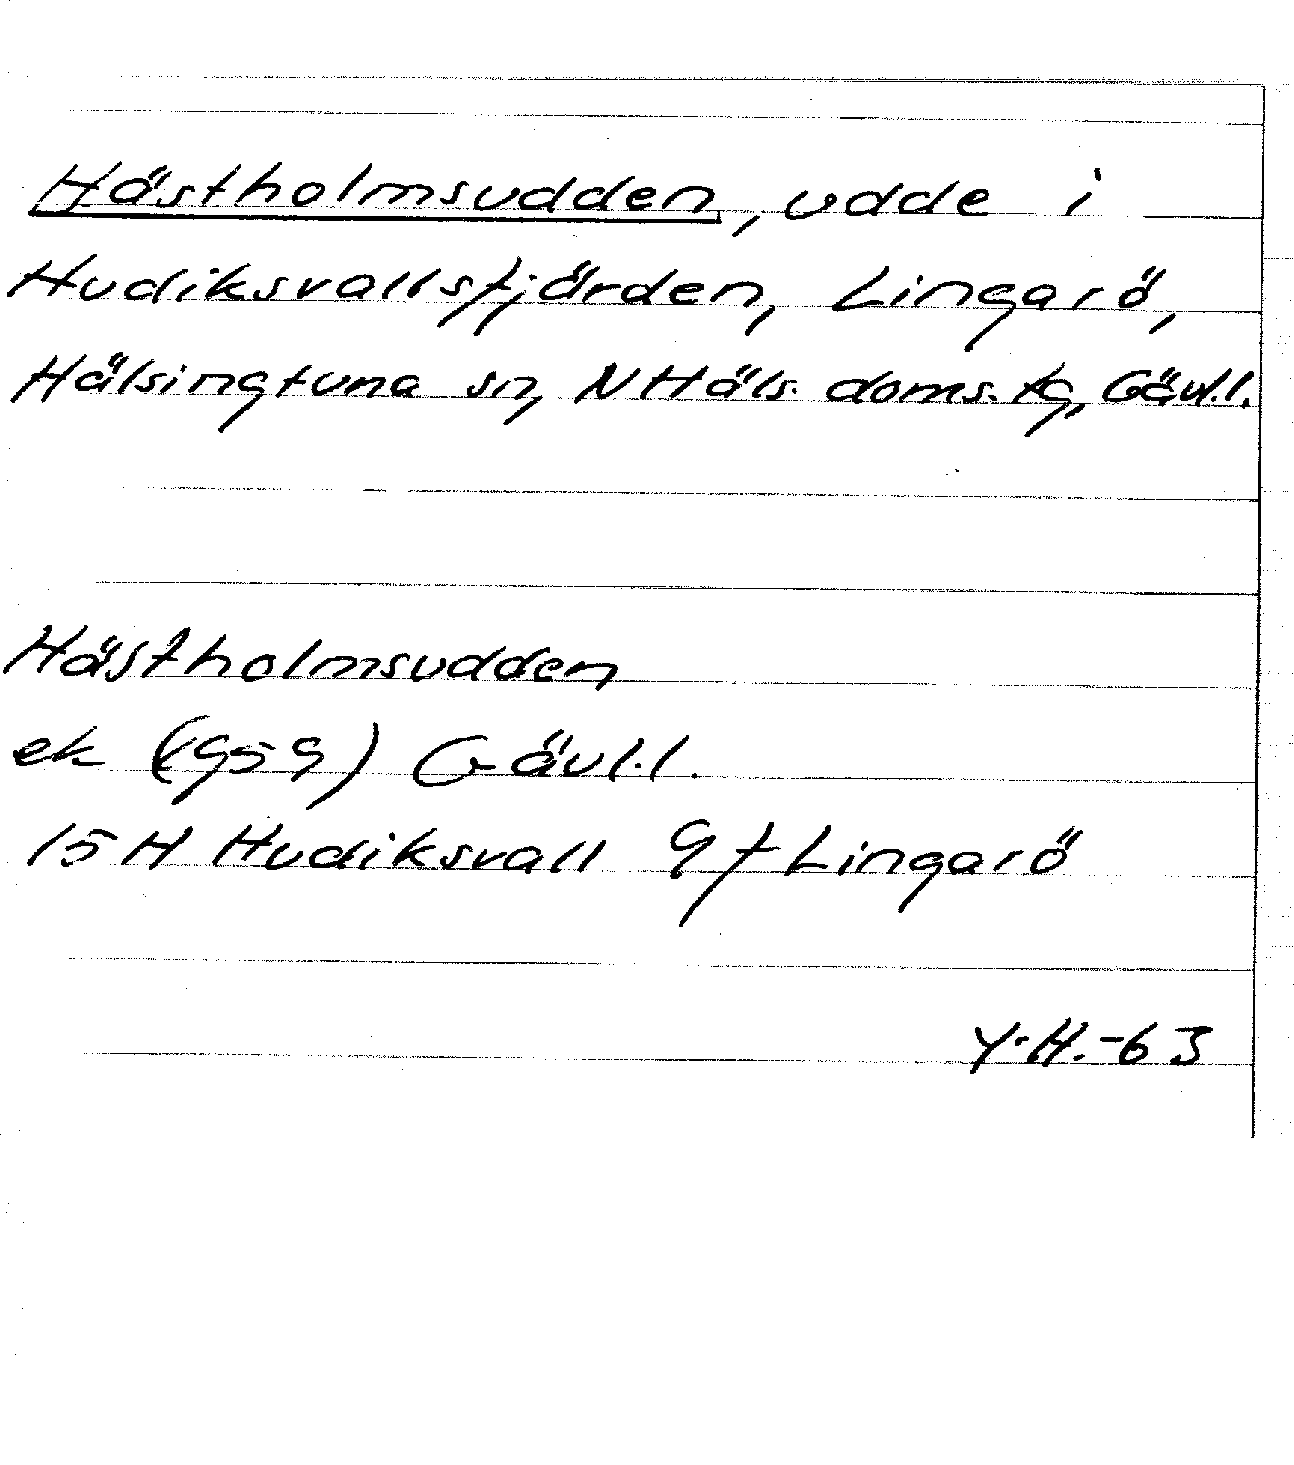 Hästholmsudden, udde i
Hudiksvallsfjärden, Lingarö,
Hälsingtuna sn, NHäls. doms. tg, Gävl.l.
Hästholmsudden
ek (1959) Gävl.l.
15H Hudiksvall 9f Lingarö
Y.H.-63